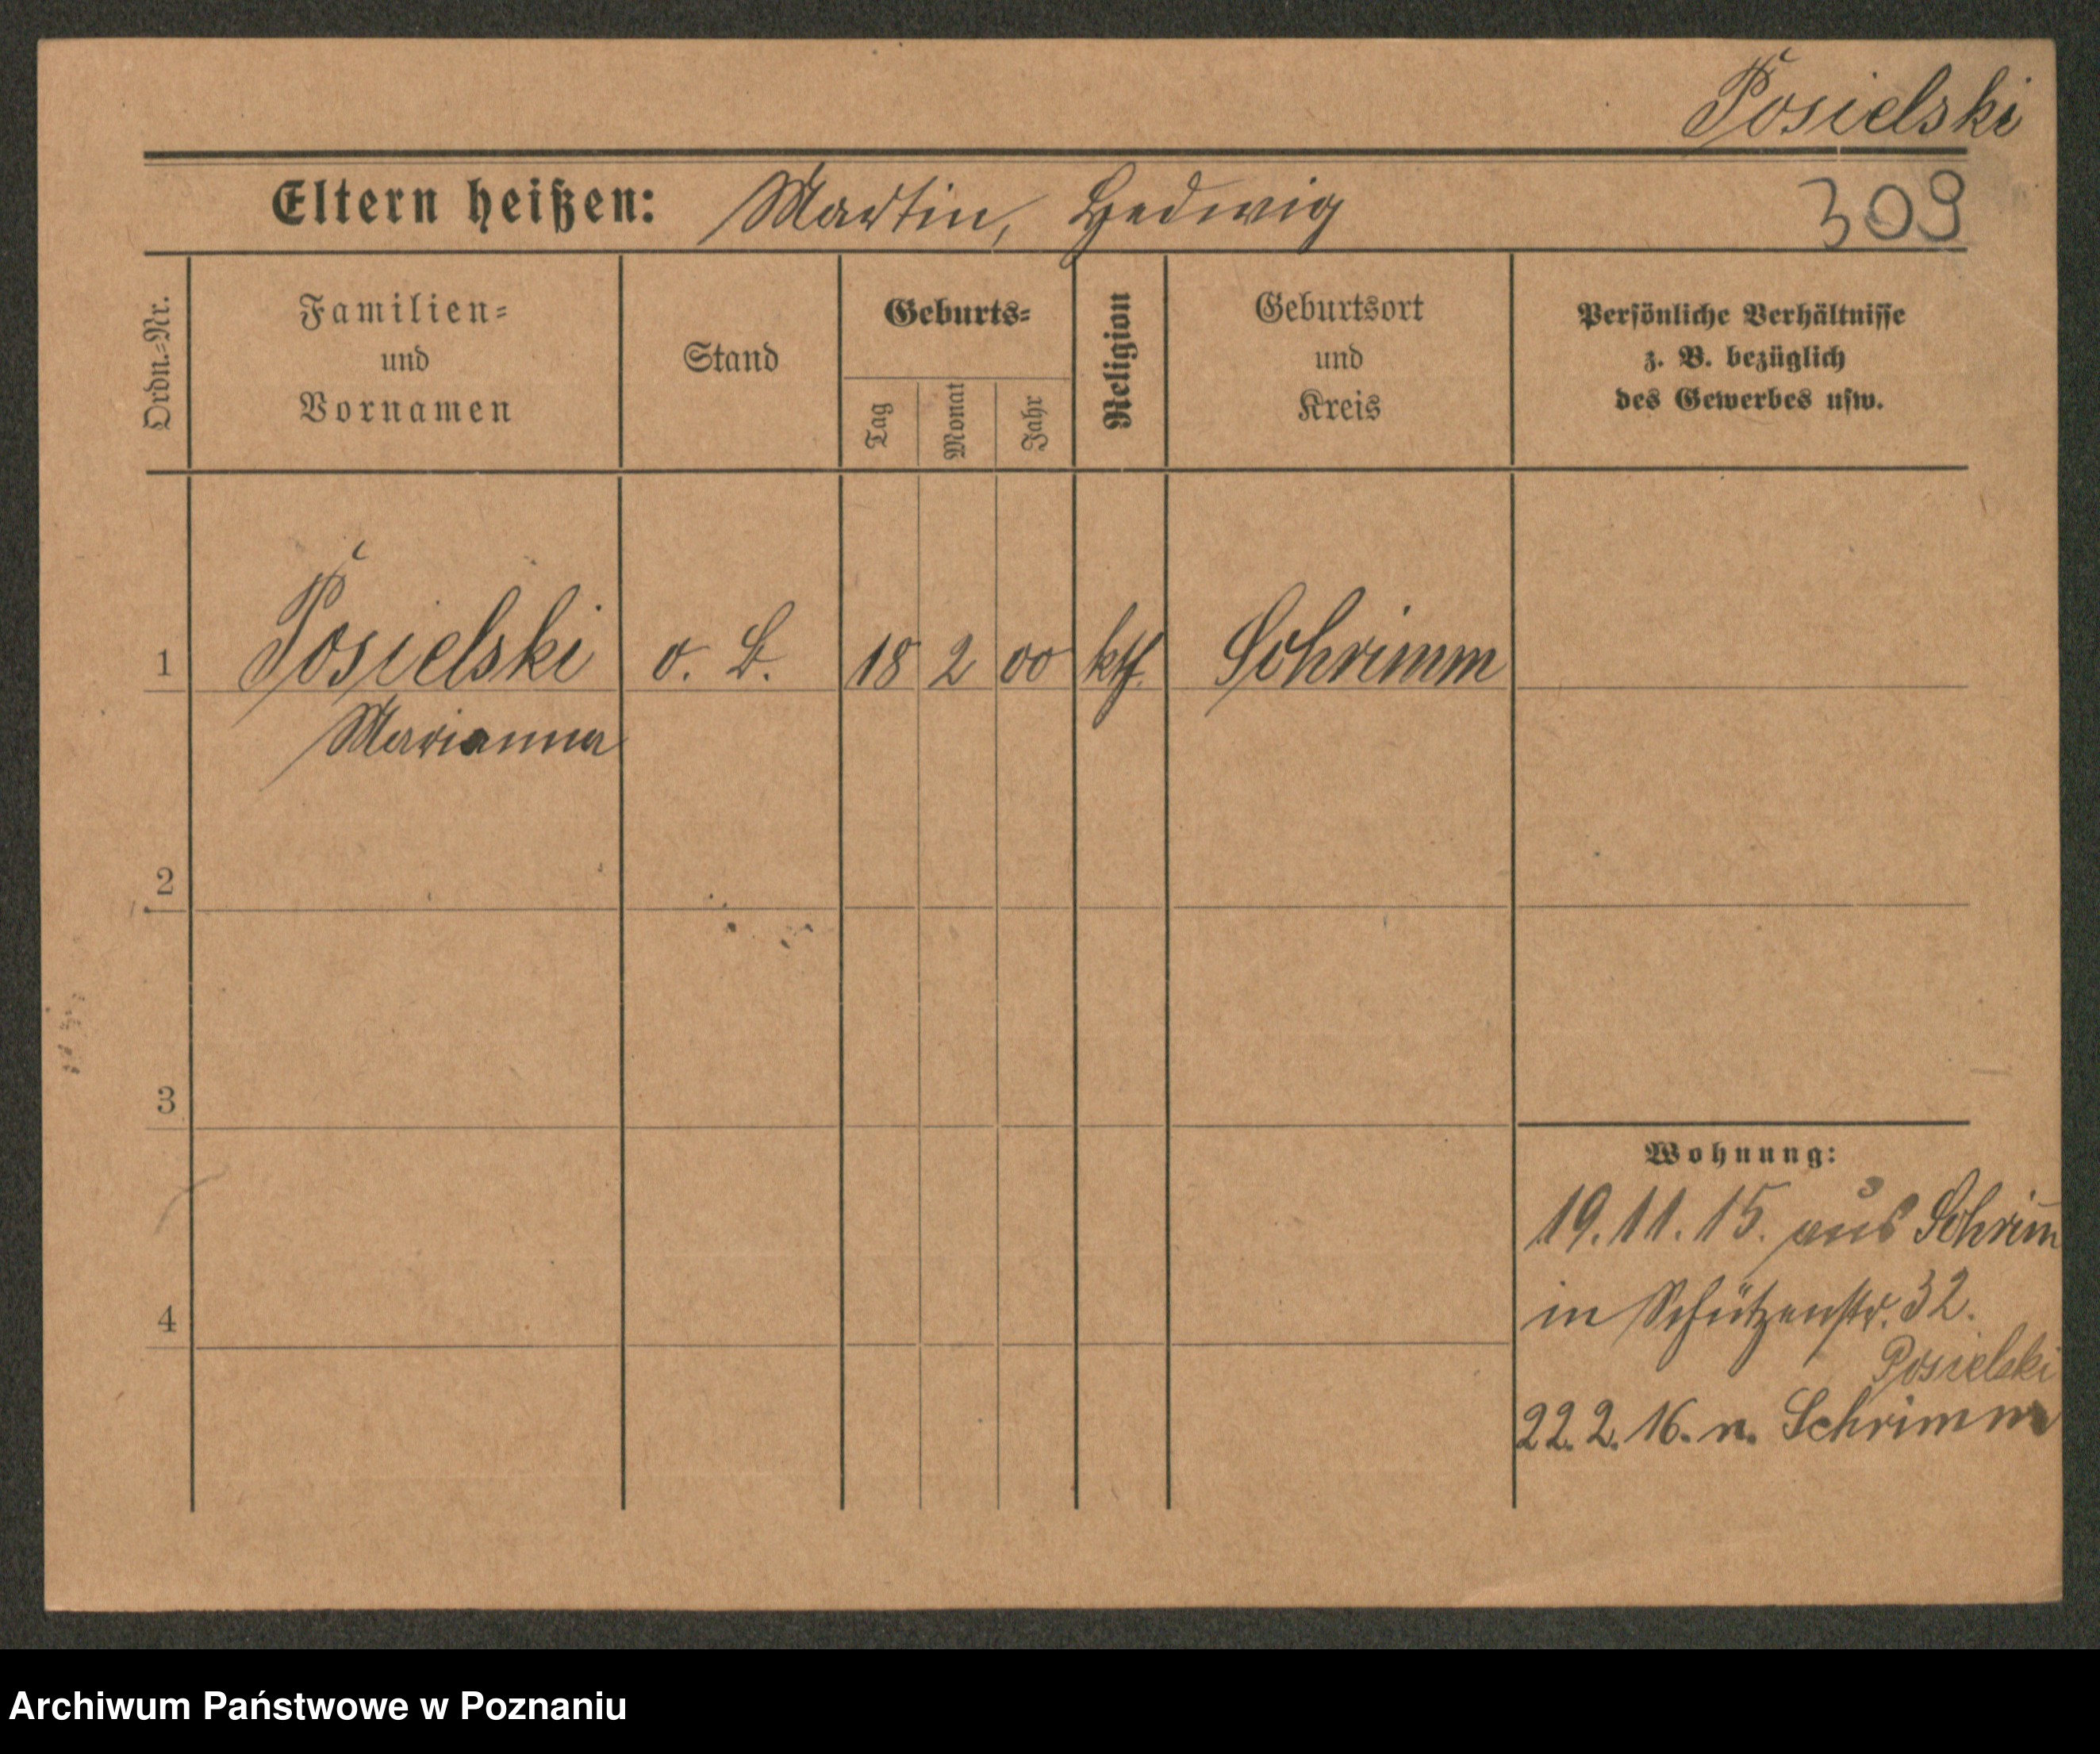 Posielski
Eltern heißen: Martin, Hedwig 309
Ordn.-Nr.
Familien-
und
Vornamen
Stand
Geburts-
Tag
Monat
Jahr
Religion
Geburtsort
und
Kreis
Persönliche Verhältnisse
z. B. bezüglich
des Gewerbes usw.
1 Posielski o. B. 18 2 00 kth. Schrimm
Marianna
2
3
4
Wohnung:
19.11.15. aus Schrim̅
in Schützenstr. 32.
Posielski
22.2.16. n. Schrimm
Archiwum Państwowe w Poznaniu